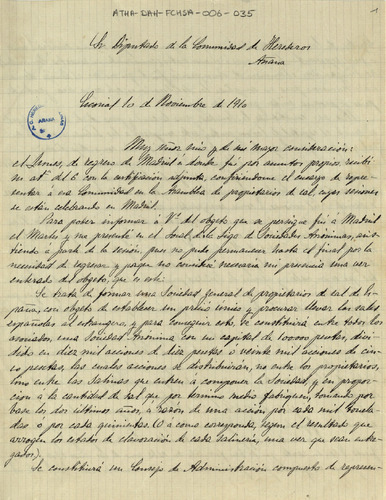 ATHA-DAH-FCHSA-006-035
1
Sr Diputado de la Comunidad de Herederos
Añana
Escorial 10 de Noviembre de 1910
Muy señor mio y de mi mayor consideración:
el Jueves, de regreso de Madrid á donde fuí por asuntos propios, recibí
su att. del 6 con la certificación adjunta, confiriendome el encargo de repre-
sentar á esa Comunidad en la Asamblea de propietarios de sal, cuyas sesiones
se están celebrando en Madrid.
Para poder informar á Vd. del objeto que se persigue fuí á Madrid
el Martes y me presenté en el local de la Liga de Sociedades Anónimas, asis-
tiendo á parte de la sesión, pues no pude permanecer hasta el final por la
necesidad de regresar y porque no consideré necesaria mi presencia una vez
enterado del objeto, que es este:
Se trata de formar una Sociedad general de propietarios de sal de Es-
paña, con objeto de establecer un precio único y procurar llevar las sales
españolas al extrangero, y para conseguir esto, se constituirá entre todos los
asociados, una Sociedad Anónima con un capital de 100000 pesetas, divi-
dido en diez mil acciones de diez pesetas ó veinte mil acciones de cin-
co pesetas, las cuales acciones se distribuirán, no entre los propietarios,
sino entre las Salinas que entren á componer la Sociedad, y en propor-
cion á la cantidad de sal que por termino medio fabriquen, tomando por
base los dos ultimos años, á razón de una acción por cada mil tonela-
das ó por cada quinientas. (O á como corresponda, segun el resultado que
arrojen los estados de elavoración de cada Salinería, una vez que sean entre-
gados).
Se constituirá un Consejo de Administración compuesto de represen-